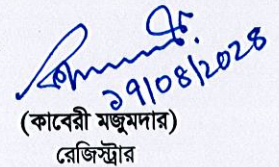 ১৭/০৪/২০২৪
(কাবেরী মজুমদার)
রেজিস্ট্রার